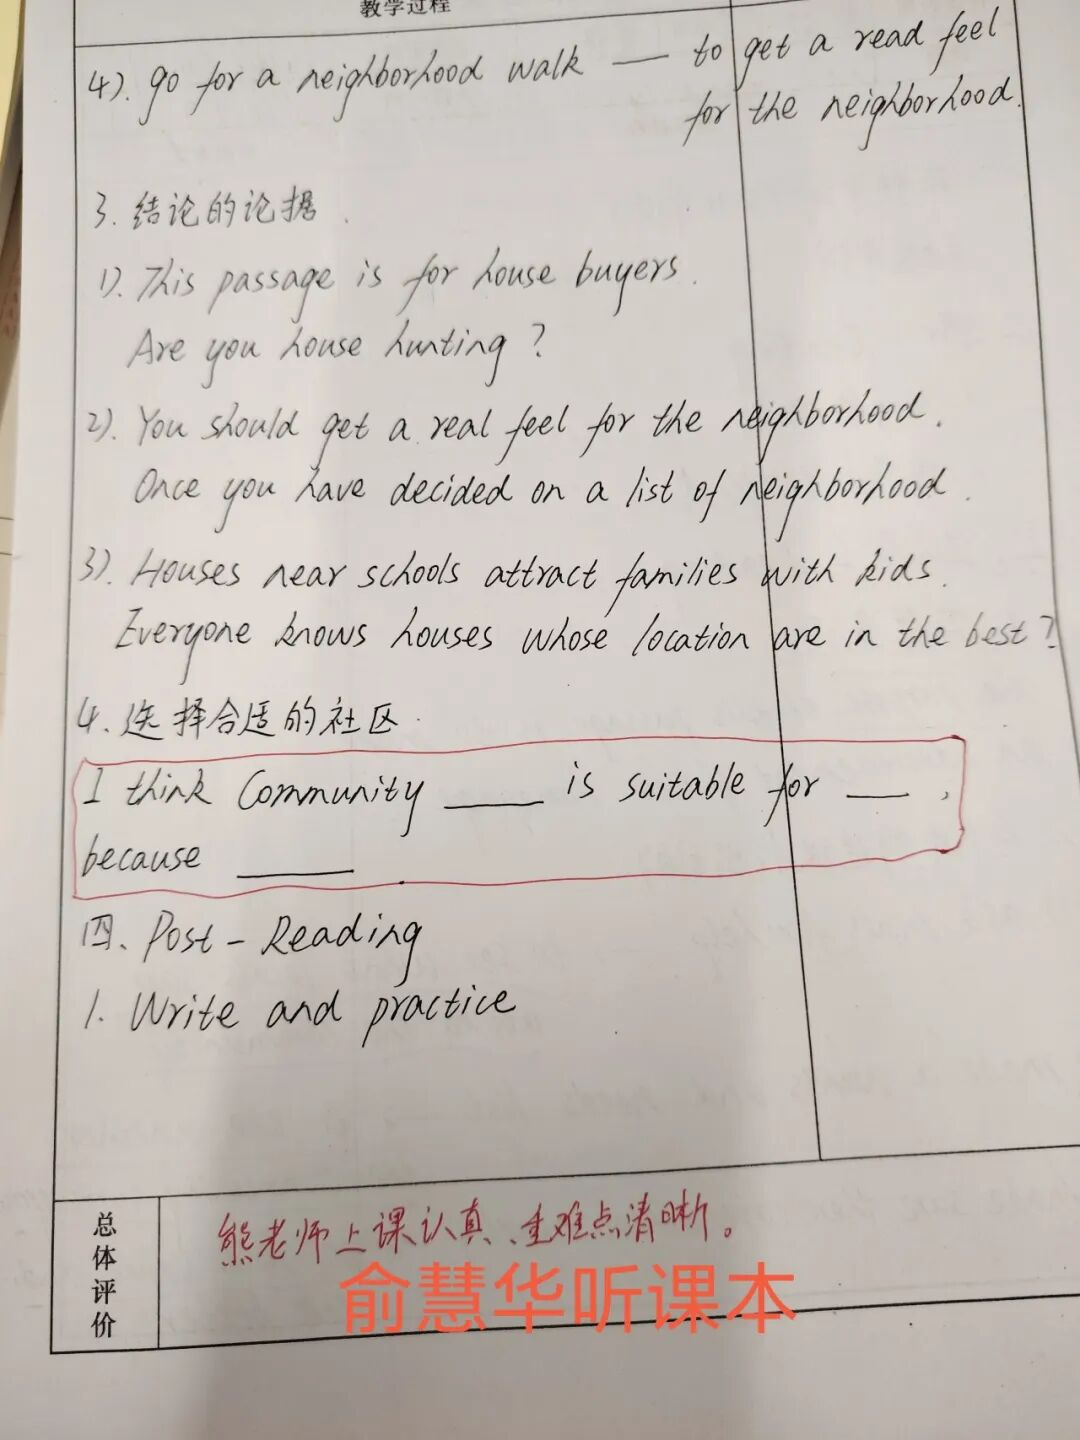 教学过程
4). go for a neighborhood walk — to get a read feel
for the neighborhood.
3. 结论的论据.
1). This passage is for house buyers.
Are you house hunting?
2). You should get a real feel for the neighborhood.
Once you have decided on a list of neighborhood.
3). Houses near schools attract families with kids.
Everyone knows houses whose location are in the best?
4. 选择合适的社区.
I think Community ____ is suitable for ___,
because ____
四、Post-Reading
1. Write and practice
总体评价
熊老师上课认真、重难点清晰。
俞慧华听课本